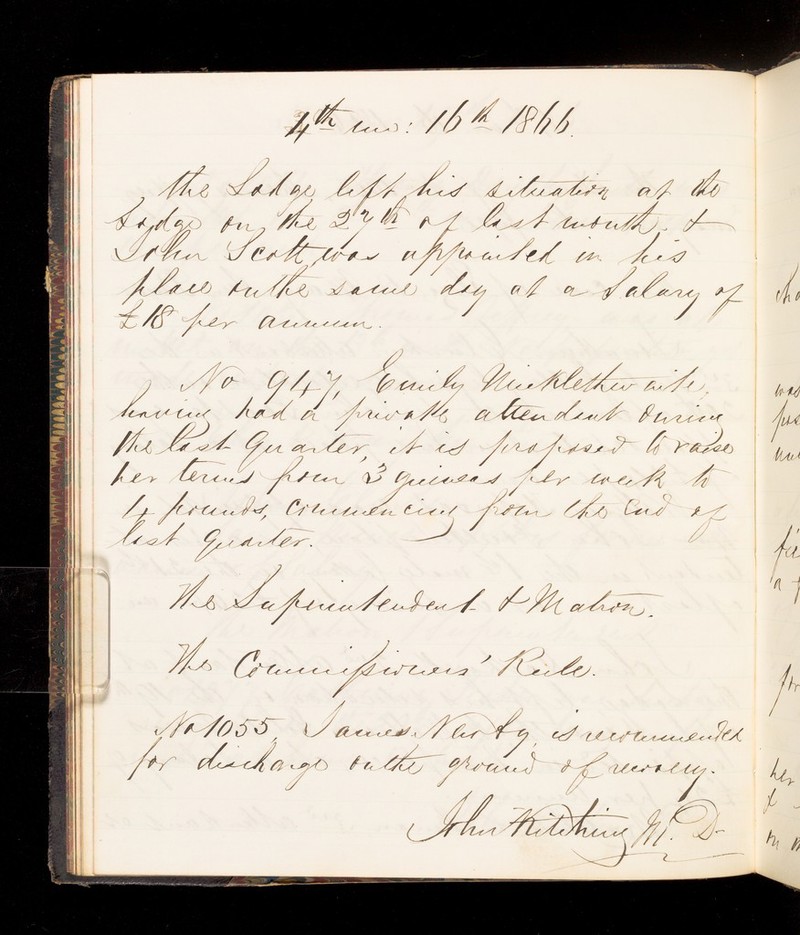 4th mo: 16th 1866.
the Lodge left his situation at the
Lodge on the 27th of last month, &
John Scott was appointed in his
place on the same day at a Salary of
£18 per annum.
No 947, Emily Micklethwaite,
having had a private attendent during
the last Quarter, it is proposed to raise
her terms from 3 guineas per week to
4 pounds, commencing from the end of
last Quarter.
The Superintendent & Matron.
The Commissioners' Rule.
No 1055, James is recommended
for discharge on the ground of recovery.
John Kitching M.D.